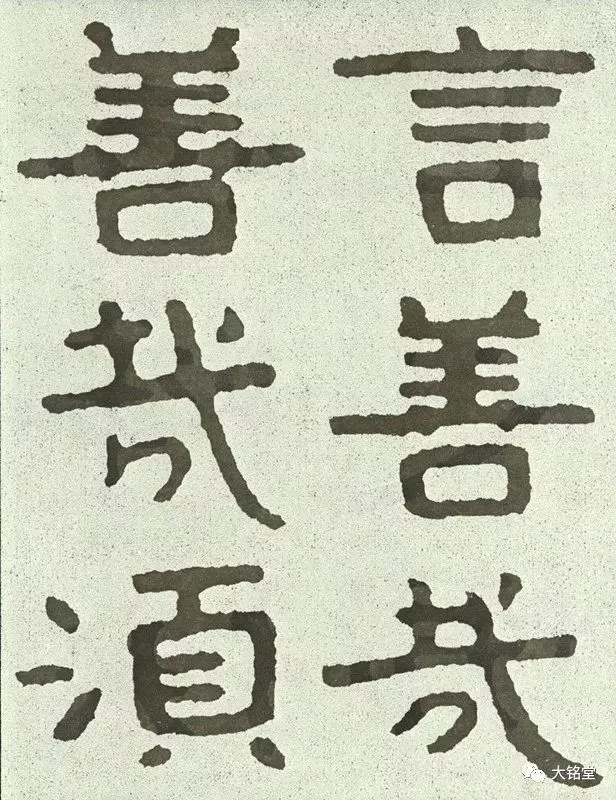 言善哉
善哉須
大铭堂